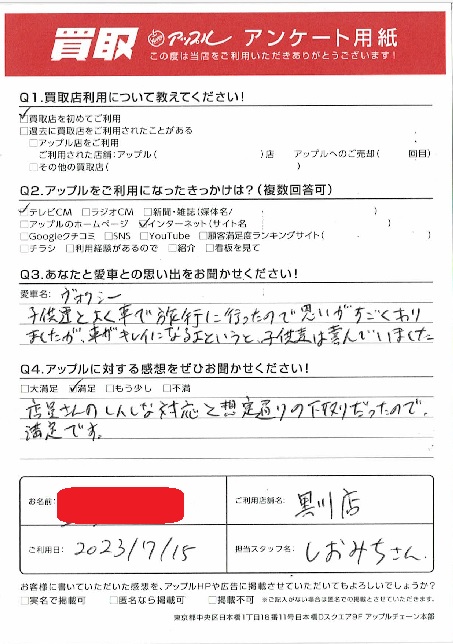 買取 アップル アンケート用紙
この度は当店をご利用いただきありがとうございます!
Q1.買取店利用について教えてください!
☑買取店を初めてご利用
□過去に買取店をご利用されたことがある
□アップル店をご利用
ご利用された店舗:アップル( )店 アップルへのご売却( 回目)
□その他の買取店( )
Q2.アップルをご利用になったきっかけは?(複数回答可)
☑テレビCM □ラジオCM □新聞・雑誌(媒体名/ )
□アップルのホームページ ☑インターネット(サイト名 )
□Googleクチコミ □SNS □YouTube □顧客満足度ランキングサイト( )
□チラシ □利用経験があるので □紹介 □看板を見て
Q3.あなたと愛車との思い出をお聞かせください!
愛車名: ヴォクシー
子供達とよく車で旅行に行ったので思いがすごくあり
ましたが、車がキレイになるよというと、子供達は喜んでいました
Q4.アップルに対する感想をぜひお聞かせください!
□大満足 ☑満足 □もう少し □不満
店員さんのしんしな対応と想定通りの下取りだったので、
満足です。
お名前: ご利用店舗名: 黒川店
ご利用日: 2023/7/15 担当スタッフ名: しおみちさん.
お客様に書いていただいた感想を、アップルHPや広告に掲載させていただいてもよろしいでしょうか?
□実名で掲載可 □匿名なら掲載可 □掲載不可 ※ご記入がない場合は匿名での掲載とさせていただきます。
東京都中央区日本橋1丁目18番11号日本橋DスクエアビF アップルチェーン本部